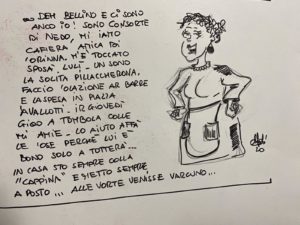 DEH BELLINO E CI SONO
ANCO IO! SONO CONSORTE
DI NEDO, MI 'IAMO
CAFIERA, AMICA DI
'ORINNA. M'È TOCCATO
SPOSÀ LULÌ - UN SONO
LA SOLITA PILLACCHERONA,
FACCIO 'OLAZIONE AR BARRE
E LA SPESA IN PIAZZA
'AVALLOTTI - IR GIOVEDÌ
GIOO A TOMBOLA COLLE
MI AMIE - LO AIUTO A FFÀ
LE 'OSE PERCHÉ LUI È
BONO SOLO A TOTTERÀ...
IN CASA STO SEMPRE COLLA
"CAPPINA" E METTO SEMPRE
A POSTO... ALLE VORTE VENISSE VARCUNO...